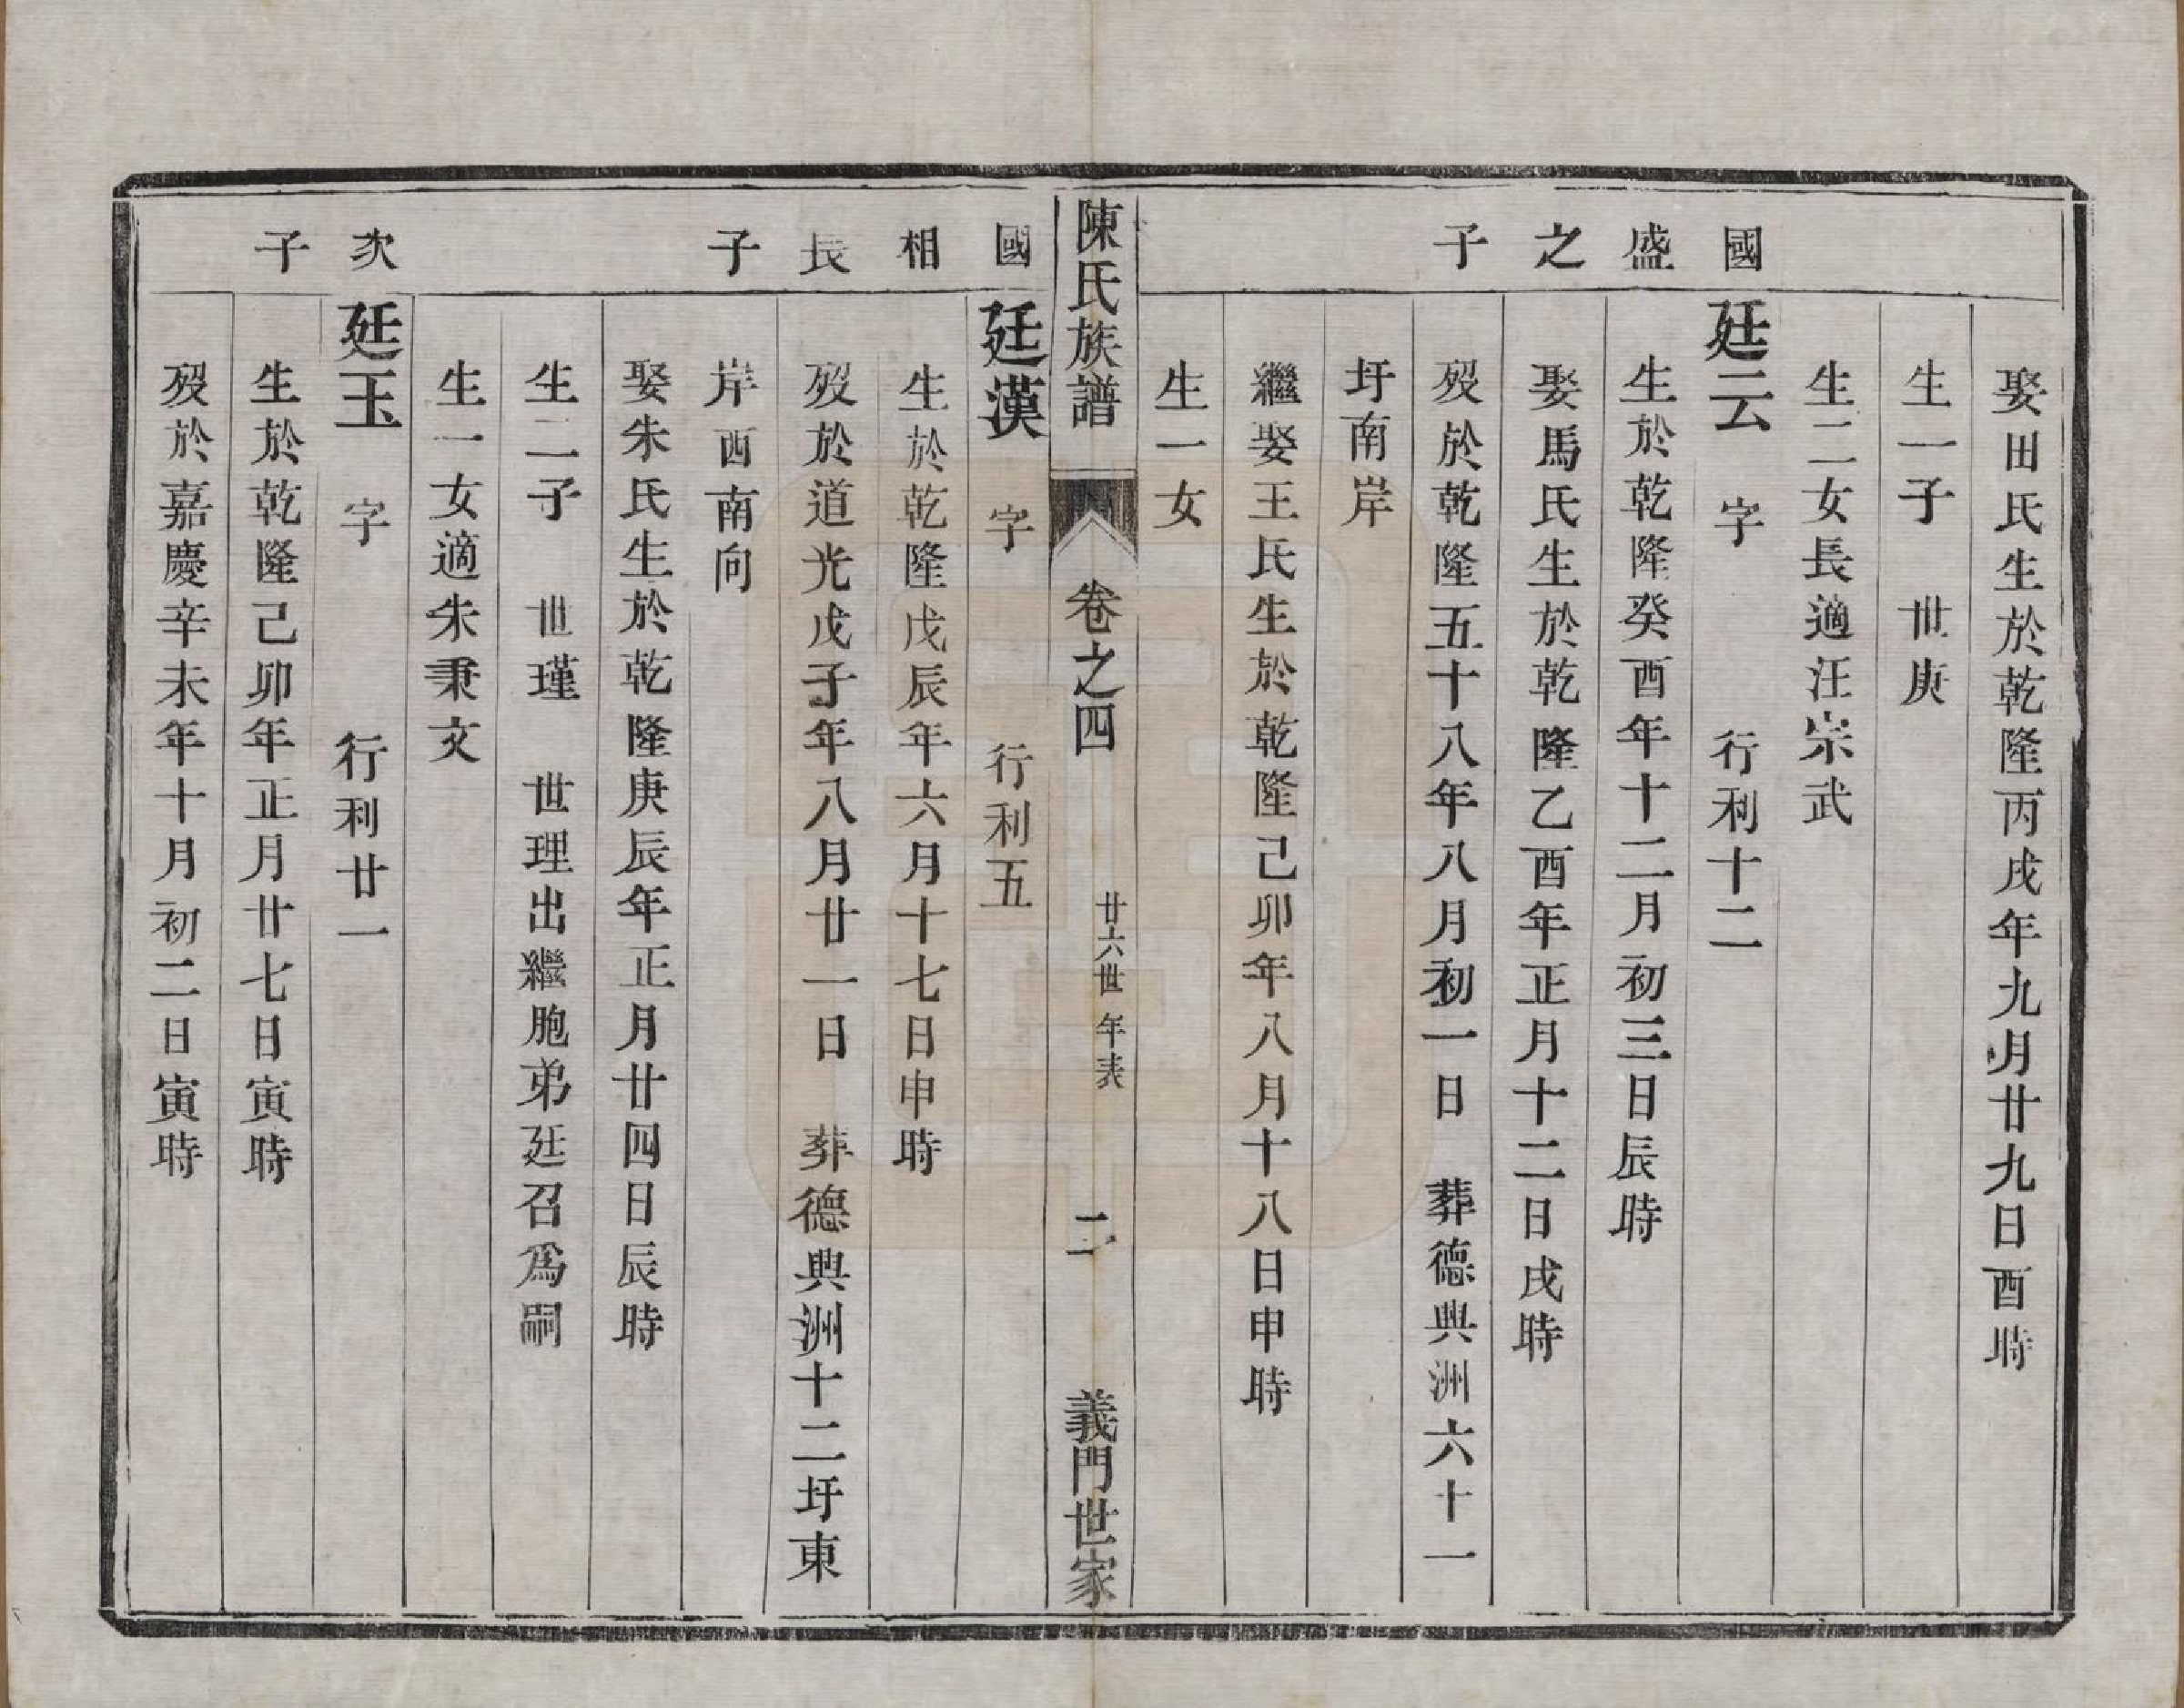 娶田氏生於乾隆丙戌年九月廿九日酉時
生一子　世庚
生二女長適汪宗武
國盛之子
廷云　字　行利十二
生於乾隆癸酉年十二月初三日辰時
娶馬氏生於乾隆乙酉年正月十二日戌時
歿於乾隆五十八年八月初一日　葬德興洲六十一
圩南岸
繼娶王氏生於乾隆己卯年八月十八日申時
生一女
陳氏族譜　卷之四　廿六世年表　二　義門世家
國相長子
廷漢　字　行利五
生於乾隆戊辰年六月十七日申時
歿於道光戊子年八月廿一日　葬德興洲十二圩東
岸酉南向
娶朱氏生於乾隆庚辰年正月廿四日辰時
生二子　世瑾　世理出繼胞弟廷召爲嗣
生一女適朱秉文
次子
廷玉　字　行利廿一
生於乾隆己卯年正月廿七日寅時
歿於嘉慶辛未年十月初二日寅時